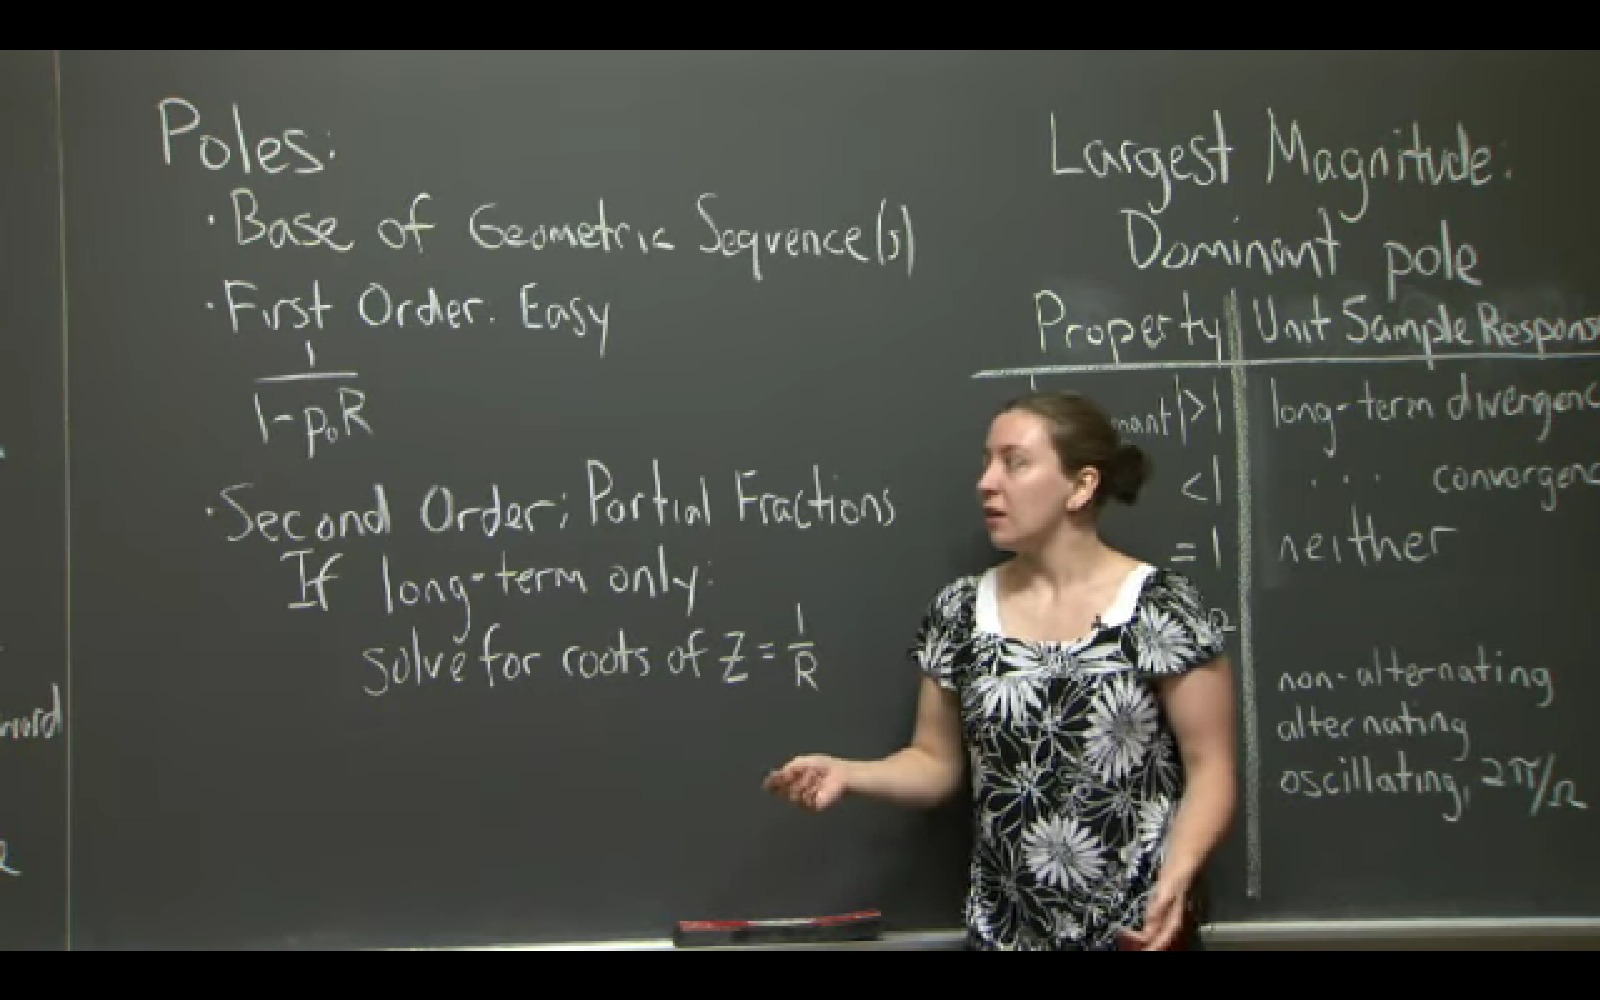 Poles:
· Base of Geometric Sequence(s)
· First Order. Easy
1
1-p₀R
· Second Order; Partial Fractions
If long-term only:
solve for roots of Z = 1/R
Largest Magnitude:
Dominant pole
Property | Unit Sample Respons
nant|>1 | long-term divergenc
<1 | · · · convergenc
=1 | neither
Ω
non-alternating
alternating
oscillating, 2π/Ω